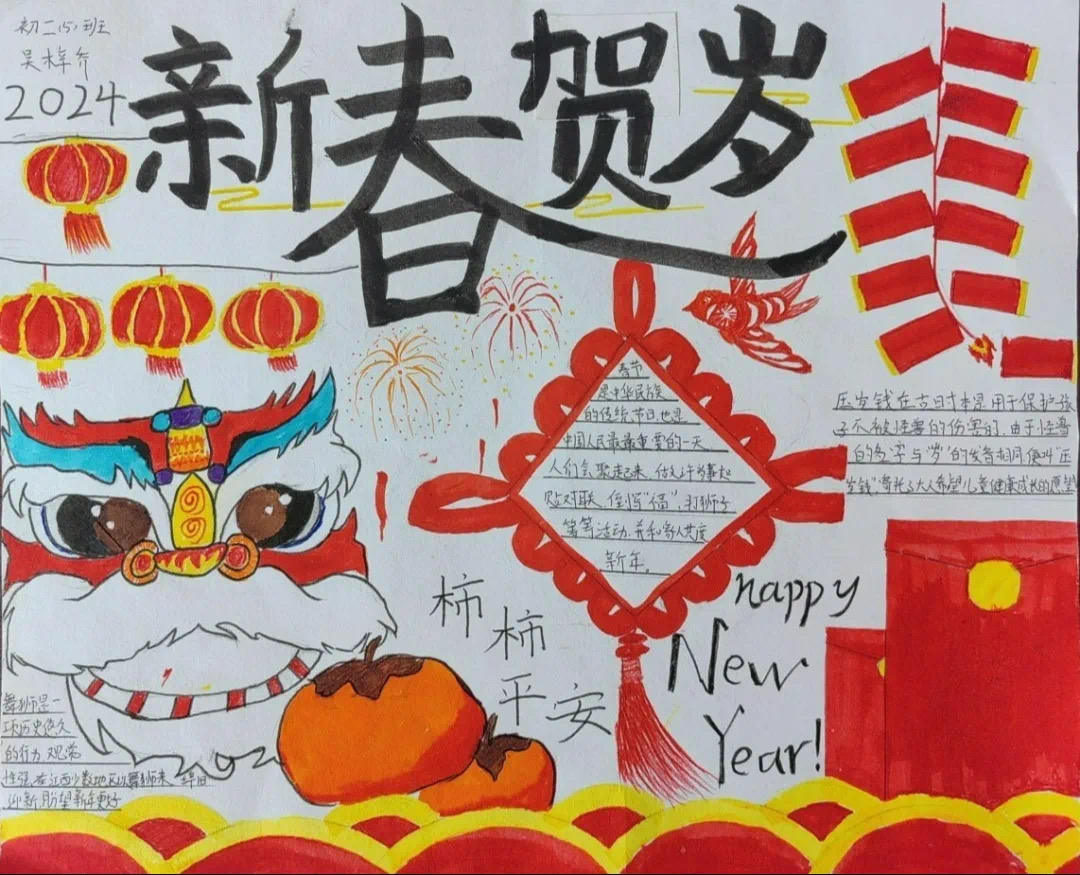 初二(5)班
吴梓乔
2024
新春贺岁
春节
是中华民族
的传统节日也是
中国人民最最重要的一天
人们会聚起来,做许多事如
贴对联,倒写"福",打狮子
等等活动,并和家人共度
新年。
压岁钱在古时本是用于保护孩
子不被怪兽的伤害的,由于怪兽
的名字与"岁"的发音相同便叫"压
岁钱"寄托了大人希望儿童健康成长的愿望
happy
New
Year!
柿
柿
平
安
舞狮是一
项历史悠久
的行为,观赏
性强,在江西少数地区以舞狮来
迎新,盼望新年更好